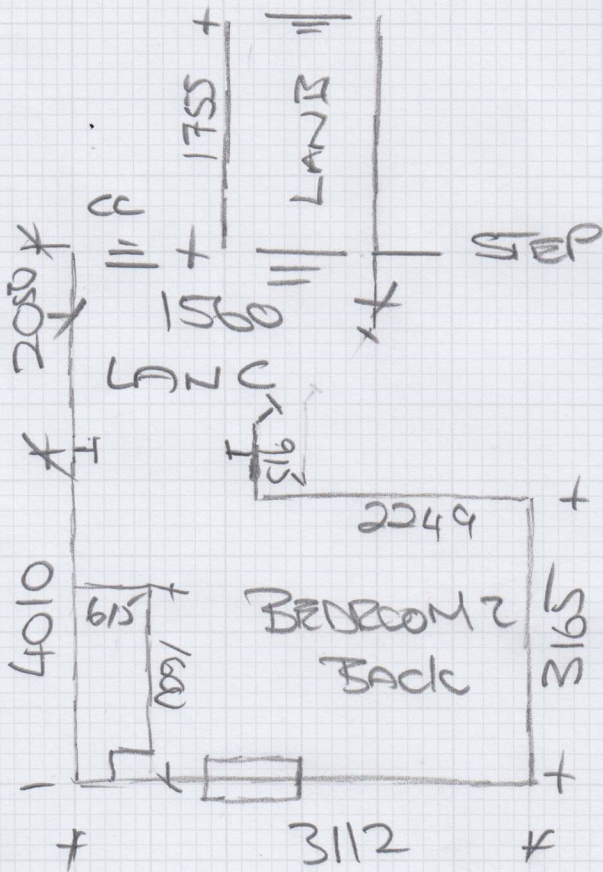 1755
LAND
CC
STEP
2050
1560
LAND C
516
2249
4010
615
BEDROOM 2
BACK
3165
3112